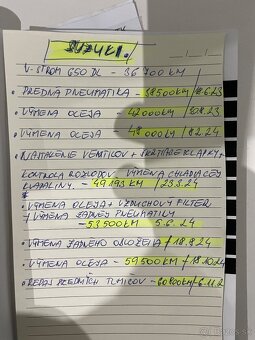 SUZUKI.
V-STROM 650 DL - 36 700 KM
• PREDNÁ PNEUMATIKA - 38500 KM
• VÝMENA OLEJA - 42000 KM
• VÝMENA OLEJA - 48 000 KM / 8.2.24
VENTILOV +
KONTROLA ROZVODOV VÝMENA CHLADIACEJ
KVAPALINY - 49193 KM / 23.3.24
• VÝMENA OLEJA + VZDUCHOVÝ FILTER
+ VÝMENA ZADNEJ PNEUMATIKY
- 53500 KM 5.6.24
• VÝMENA ZADNÉHO OBLOŽENIA / 18.8.24
• VÝMENA OLEJA - 59500 KM / 18.10.24
PREDNÝCH TLMIČOV -